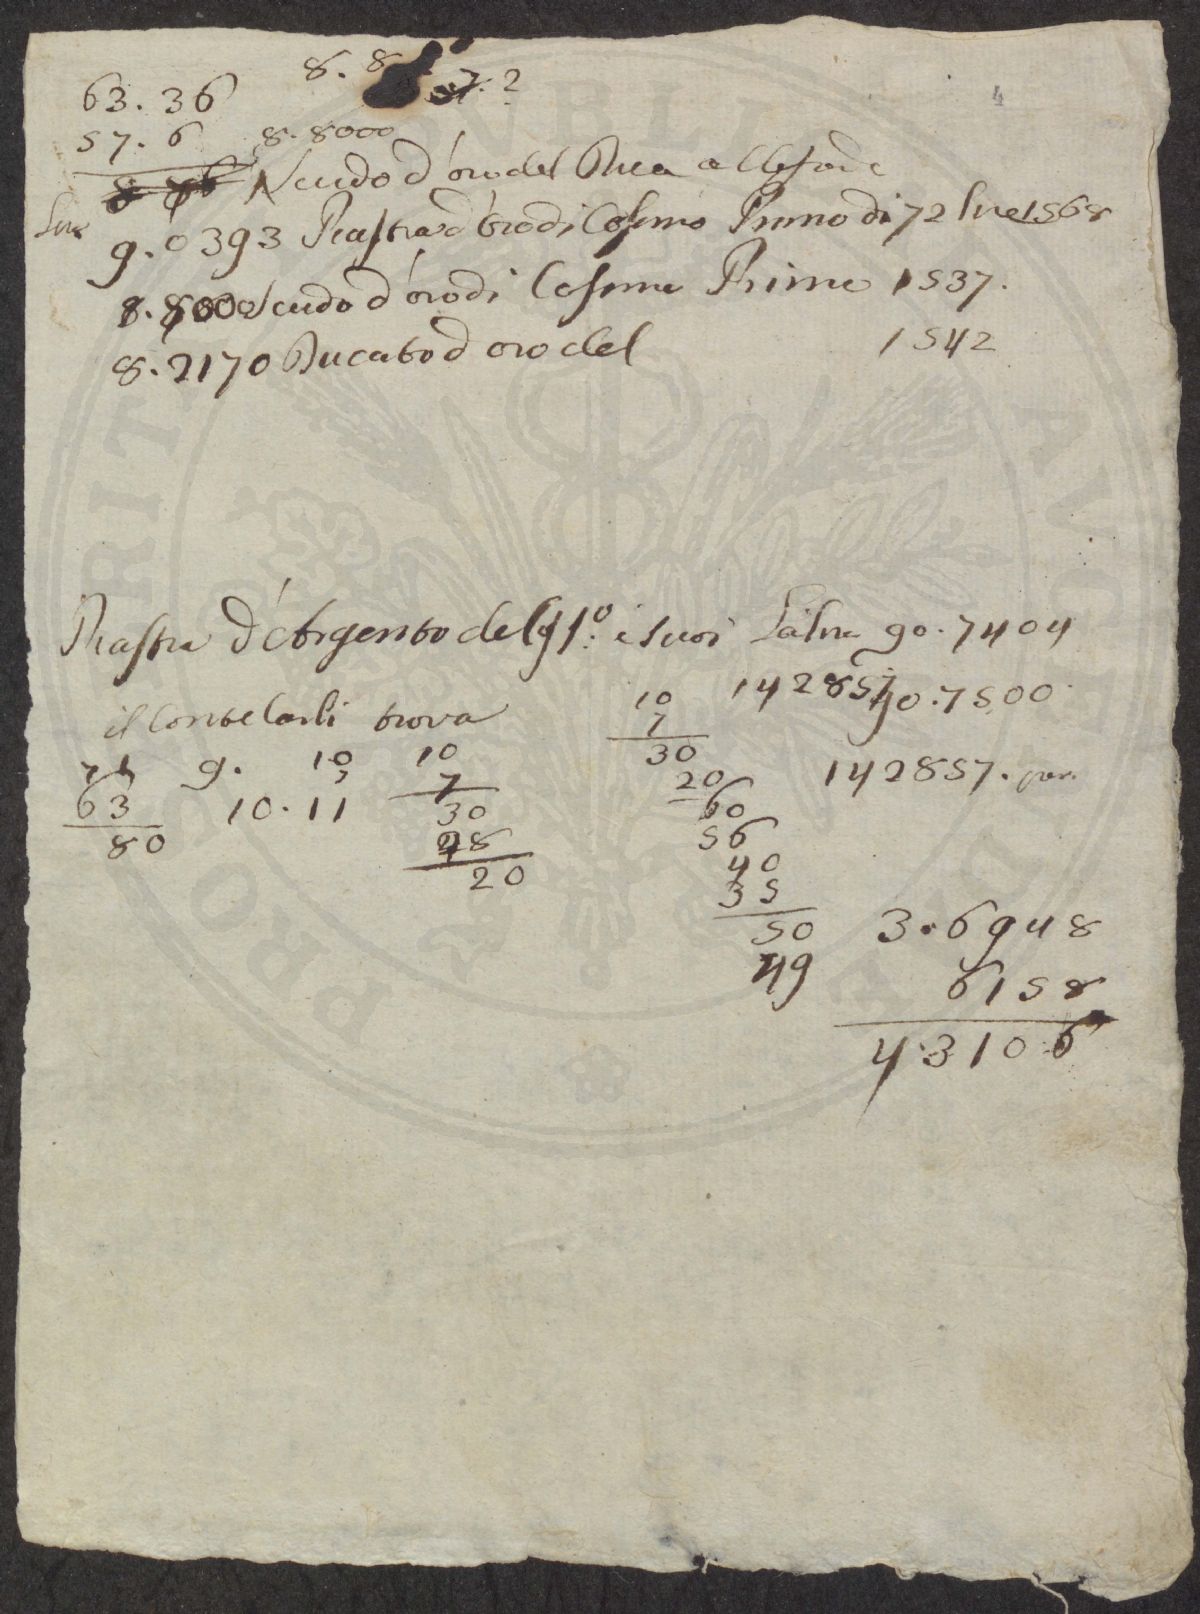 8. 8 7. 2
63. 36
57. 6 8. 8000
Scudo d'oro del Duca Allesand
Lire
9. 0393 Piastra d'oro di Cosimo Primo di 72 lire 1568
8. 8000 Scudo d'oro di Cosimo Primo 1537.
8. 2170 Ducato d'oro del 1542
Piastra d'Argento del 90. 7404
142857 90. 7500
il trova
10
7
30
20
60
56
40
35
50
49
142857.
9. 10
10. 11
63
80
10
7
30
28
20
3. 6948
6158
4. 3106
4